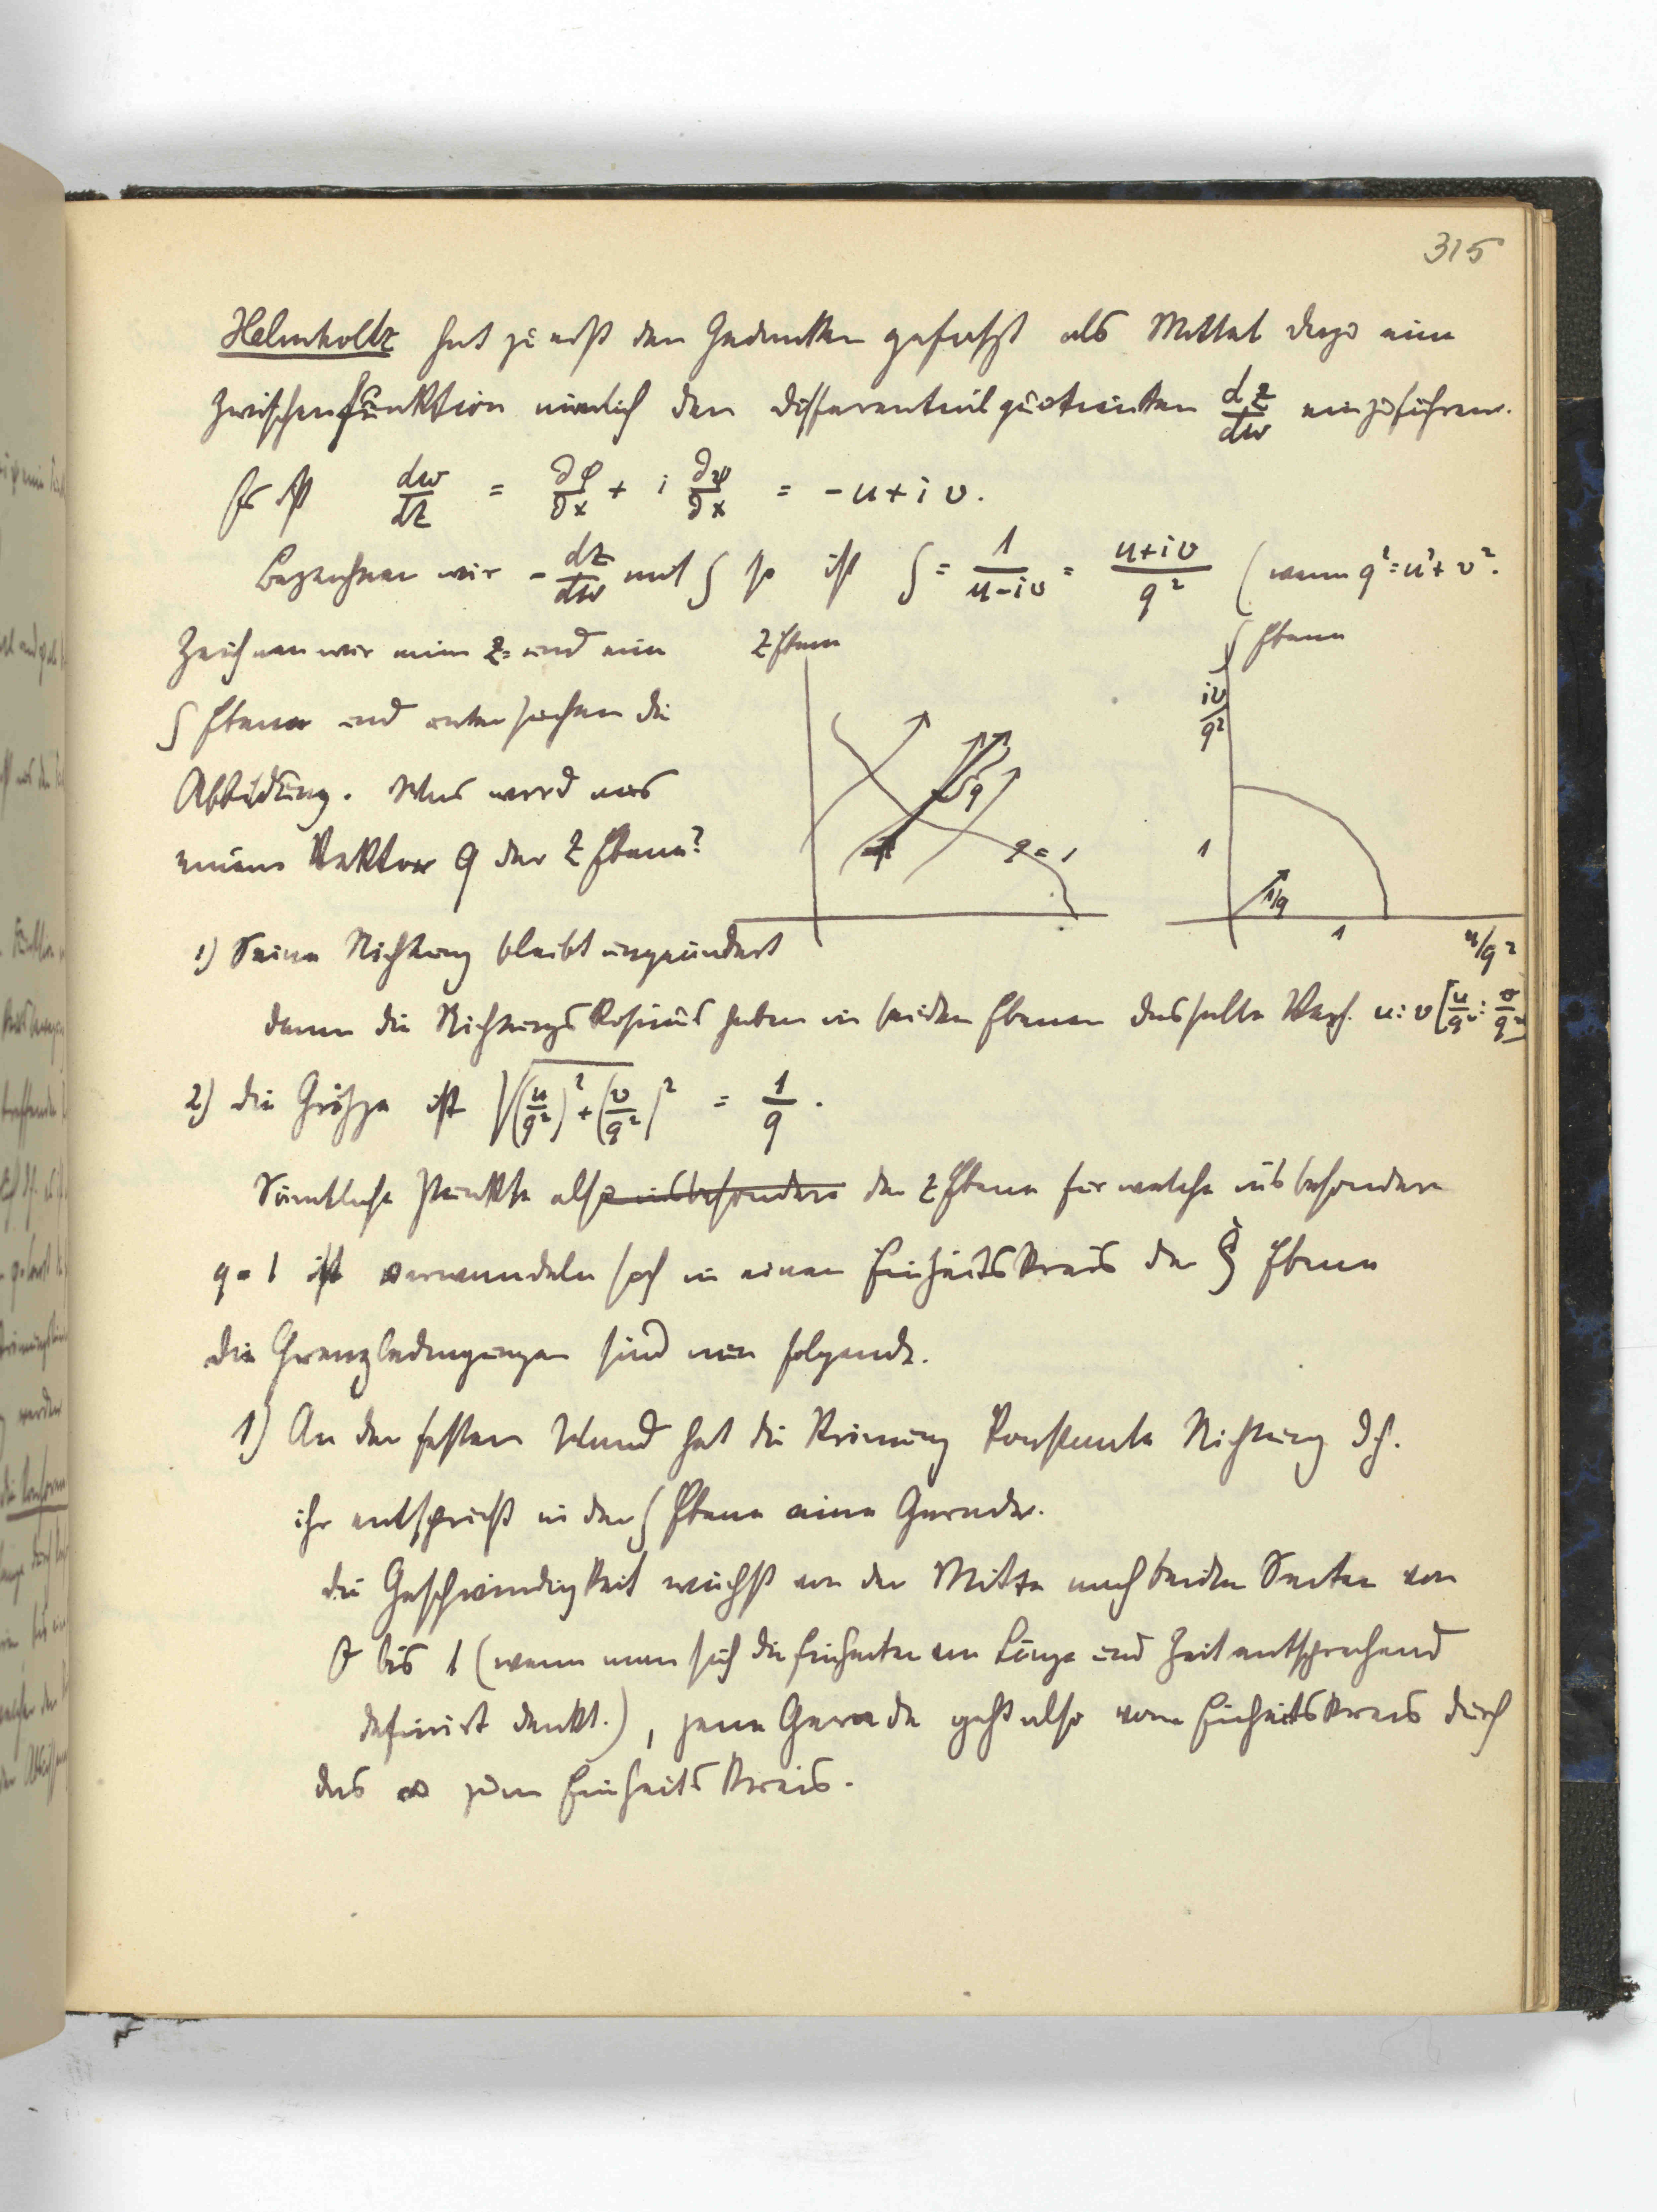 315
Helmholtz hat zuerst den Gedanken gefaßt als Mittel dazu eine
Zwischenfunktion nämlich den Differentialquotienten dz/dw einzuführen.
Es ist dw/dz = ∂φ/∂x + i ∂ψ/∂x = -u + i v.
Bezeichnen wir - dz/dw mit ζ so ist ζ = 1/(u-iv) = (u+iv)/q² (wenn q² = u² + v².
Zeichnen wir eine z- und eine
ζ Ebene und untersuchen die
Abbildung. Was wird aus
einem Vektor q der z Ebene?
z Ebene
q
q = 1
ζ Ebene
iv/q²
1
1/q
1
u/q²
1) Seine Richtung bleibt ungeändert
denn die Richtungskosinus haben in beiden Ebenen dasselbe Verh. u:v [u/q² : v/q²]
2) die Größe ist √(u/q²)² + (v/q²)² = 1/q.
Sämtliche Punkte also insbesondere der z Ebene für welche insbesondere
q = 1 ist verwandeln sich in einen Einheitskreis der ζ Ebene
Die Grenzbedingungen sind nun folgende.
1) An der festen Wand hat die Strömung konstante Richtung d.h.
ihr entspricht in der ζ Ebene eine Gerade.
die Geschwindigkeit wächst von der Mitte nach beiden Seiten von
0 bis 1 (wenn man sich die Einheiten von Länge und Zeit entsprechend
definirt denkt.), jene Gerade geht also vom Einheitskreis durch
das ∞ zum Einheitskreis.